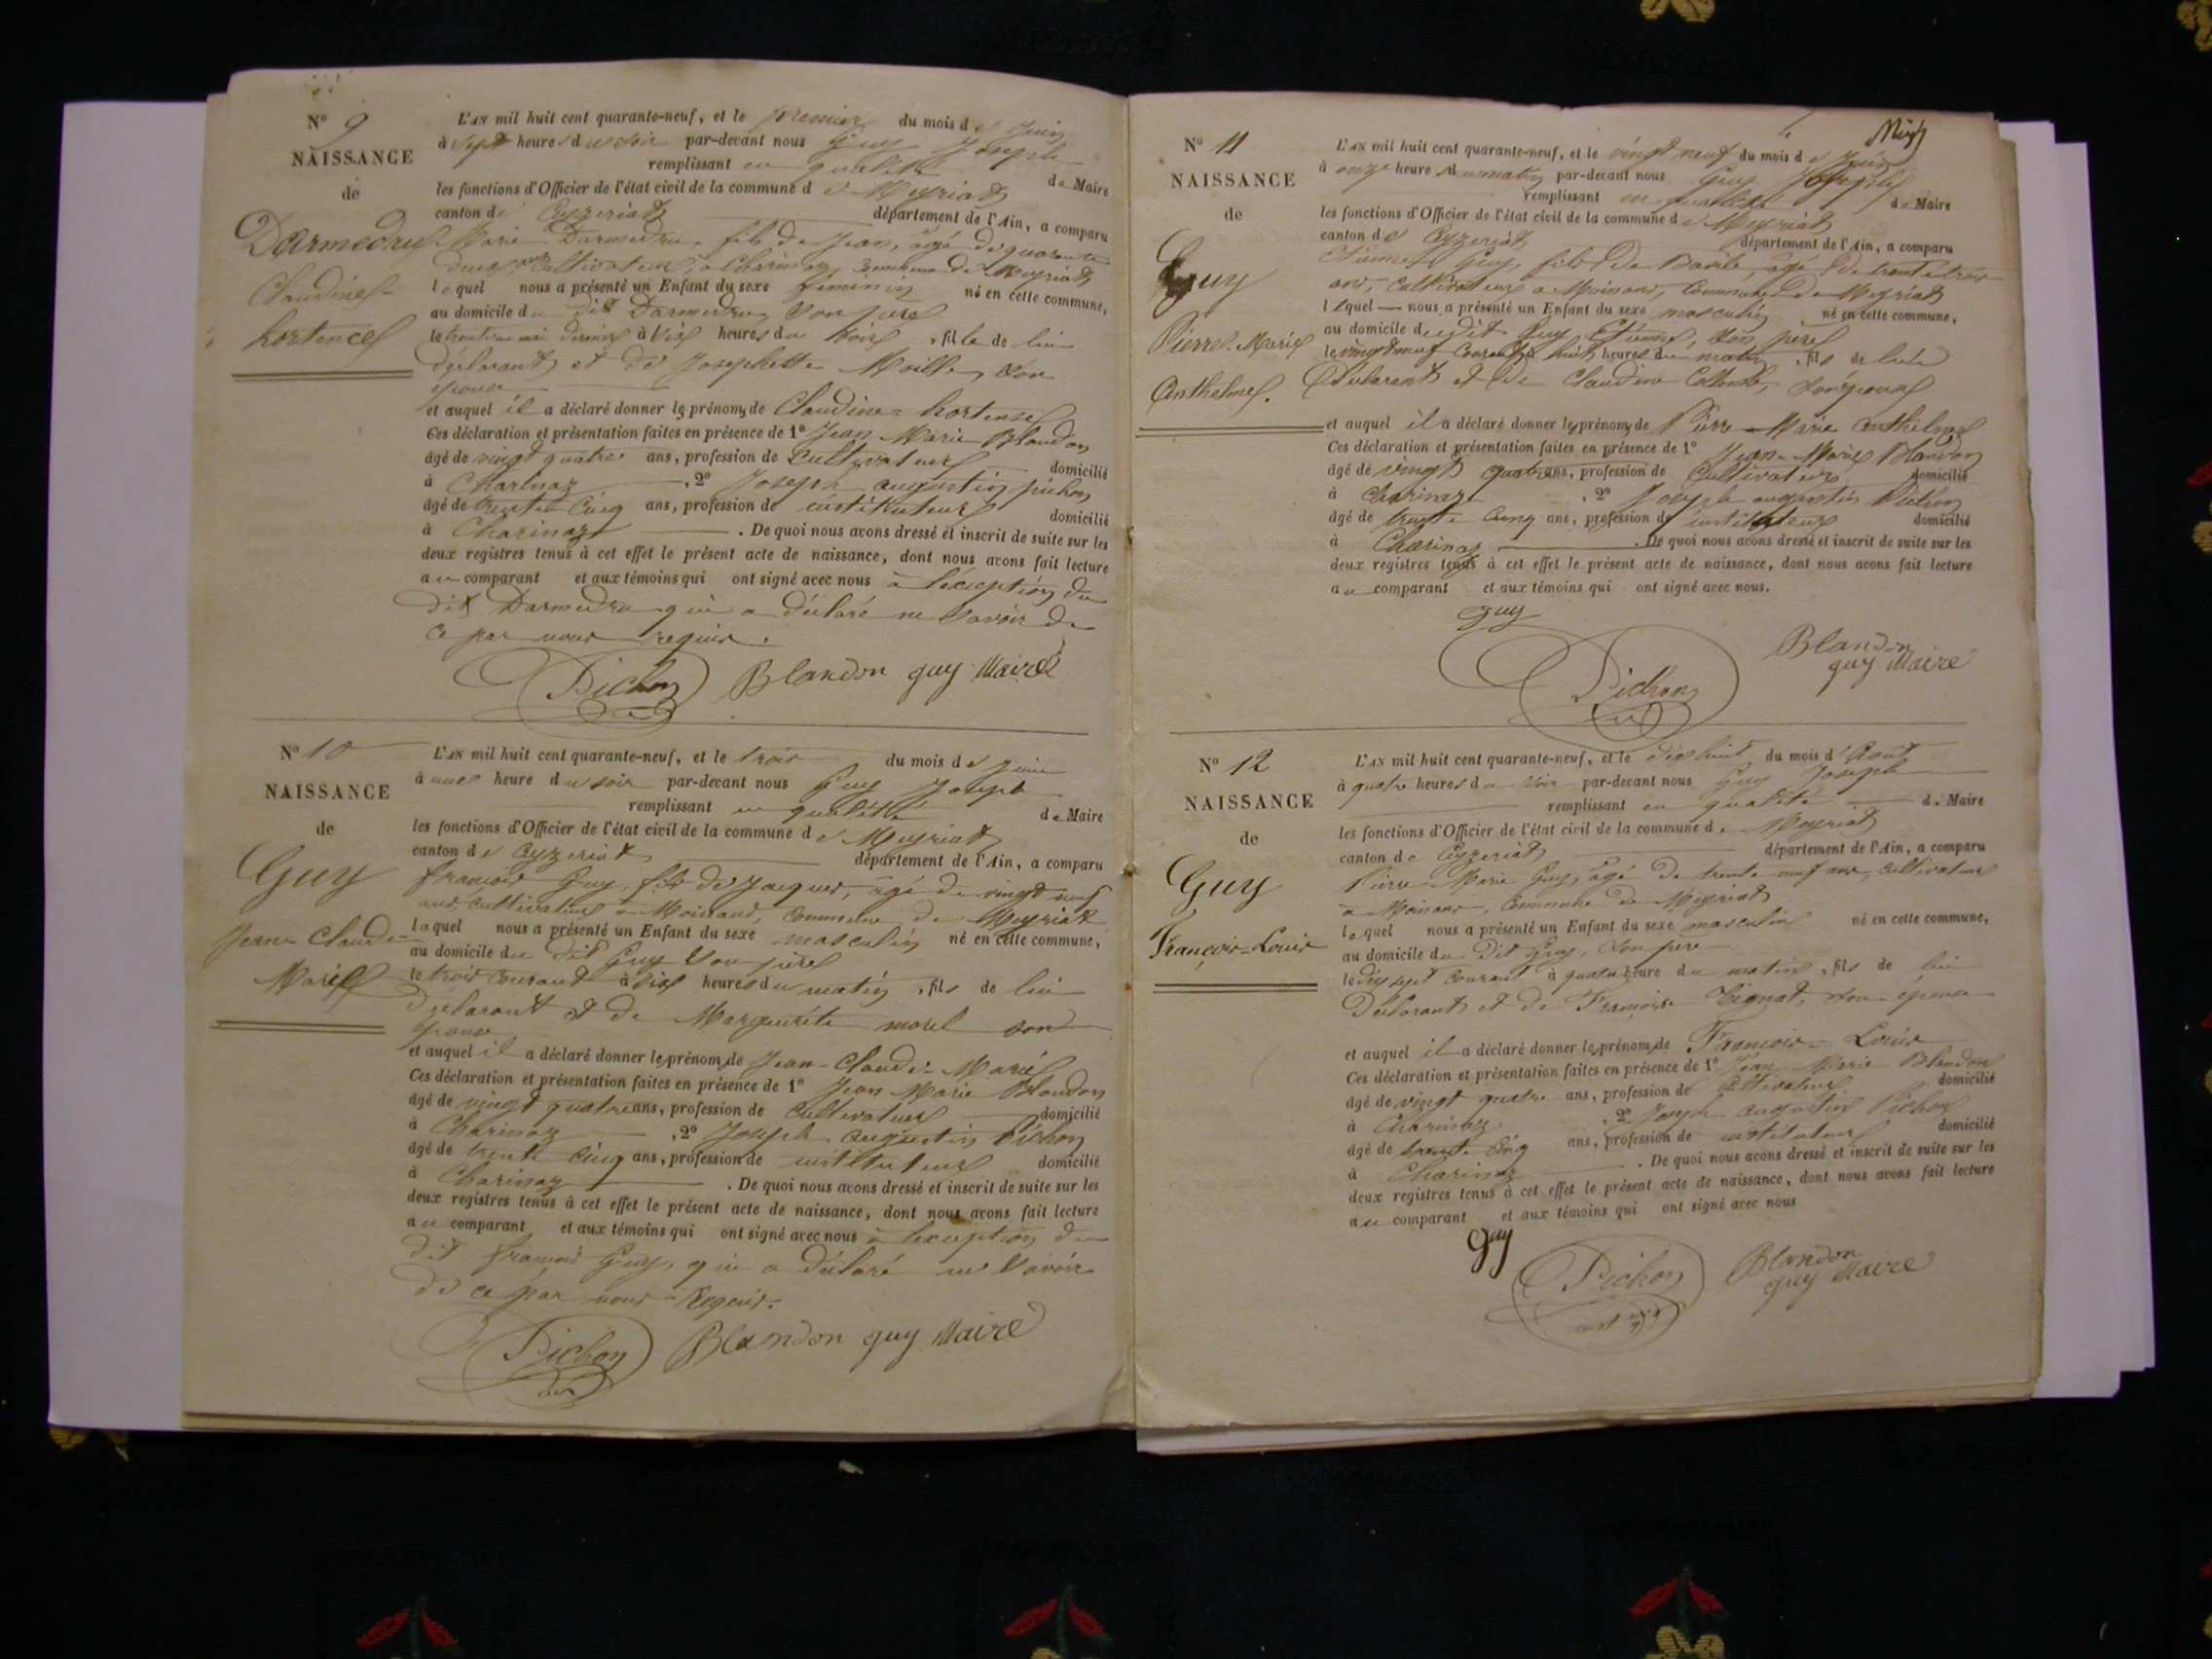 N° 9
NAISSANCE
de
Darmedru
Claudine-
hortence
L'AN mil huit cent quarante-neuf, et le premier du mois de Juin
à sept heures du soir par-devant nous Guy Joseph
remplissant en qualité de Maire
les fonctions d'Officier de l'état civil de la commune de Meyriat
canton de Ceyzeriat département de l'Ain, a comparu
Marie Darmedru, fils de Jean, âgé de quarante
deux ans cultivateur, à Charinaz, commune de Meyriat
lequel nous a présenté un Enfant du sexe feminin né en cette commune,
au domicile du dit Darmedru, son père
le trente un mai dernier à dix heures du soir, fille de lui
déclarant et de Josephette Moille, son
épouse
et auquel il a déclaré donner les prénoms de Claudine-hortense
Ces déclaration et présentation faites en présence de 1° Jean Marie Blandon
âgé de vingt quatre ans, profession de cultivateur domicilié
à Charinaz, 2° Joseph augustin pichon
âgé de trente cinq ans, profession de instituteur domicilié
à Charinaz. De quoi nous avons dressé et inscrit de suite sur les
deux registres tenus à cet effet le présent acte de naissance, dont nous avons fait lecture
au comparant et aux témoins qui ont signé avec nous à l'exception du
dit Darmedru qui a déclaré ne savoir de
ce par nous requis.
Pichon Blandon guy Maire
N° 10
NAISSANCE
de
Guy
Jean-Claude-
Marie
L'AN mil huit cent quarante-neuf, et le trois du mois de juin
à une heure du soir par-devant nous Guy Joseph
remplissant en qualité de Maire
les fonctions d'Officier de l'état civil de la commune de Meyriat
canton de Ceyzeriat département de l'Ain, a comparu
françois Guy, fils de Jacques, âgé de vingt neuf
ans, cultivateur à Moinans, commune de Meyriat
lequel nous a présenté un Enfant du sexe masculin né en cette commune,
au domicile du dit Guy son père
le trois courant à dix heures du matin, fils de lui
déclarant et de Marguerite morel son
épouse
et auquel il a déclaré donner les prénoms de Jean-Claude-Marie
Ces déclaration et présentation faites en présence de 1° Jean Marie Blandon
âgé de vingt quatre ans, profession de cultivateur domicilié
à Charinaz, 2° Joseph augustin Pichon
âgé de trente cinq ans, profession de instituteur domicilié
à Charinaz. De quoi nous avons dressé et inscrit de suite sur les
deux registres tenus à cet effet le présent acte de naissance, dont nous avons fait lecture
au comparant et aux témoins qui ont signé avec nous à l'exception du
dit françois Guy, qui a déclaré ne savoir
de ce par nous Requis.
Pichon Blandon guy Maire
N° 11
NAISSANCE
de
Guy
Pierre-Marie
Anthelme.
L'AN mil huit cent quarante-neuf, et le vingt neuf du mois de Juin
à onze heures du matin par-devant nous Guy Joseph
remplissant en qualité de Maire
les fonctions d'Officier de l'état civil de la commune de Meyriat
canton de Ceyzeriat département de l'Ain, a comparu
Etienne Guy, fils de âgé de trente trois
ans, cultivateur à Moinans, commune de Meyriat
lequel nous a présenté un Enfant du sexe masculin né en cette commune,
au domicile du dit Guy Etienne, son père
le vingt neuf courant à huit heures du matin, fils de lui
déclarant et de Claudine Collomb, son épouse
et auquel il a déclaré donner les prénoms de Pierre-Marie anthelme
Ces déclaration et présentation faites en présence de 1° Jean-Marie Blandon
âgé de vingt quatre ans, profession de cultivateur domicilié
à Charinaz, 2° Joseph augustin Pichon
âgé de trente cinq ans, profession de instituteur domicilié
à Charinaz. De quoi nous avons dressé et inscrit de suite sur les
deux registres tenus à cet effet le présent acte de naissance, dont nous avons fait lecture
au comparant et aux témoins qui ont signé avec nous.
guy
Pichon Blandon
guy Maire
N° 12
NAISSANCE
de
Guy
François-Louis
L'AN mil huit cent quarante-neuf, et le dix huit du mois d'Août
à quatre heures du soir par-devant nous Guy Joseph
remplissant en qualité de Maire
les fonctions d'Officier de l'état civil de la commune de Meyriat
canton de Ceyzeriat département de l'Ain, a comparu
Pierre-Marie Guy, âgé de trente neuf ans, cultivateur
à Moinans, commune de Meyriat
lequel nous a présenté un Enfant du sexe masculin né en cette commune,
au domicile du dit Guy, son père
le dix sept courant à quatre heure du matin, fils de lui
déclarant et de Françoise Tignat, son épouse
et auquel il a déclaré donner les prénoms de François-Louis
Ces déclaration et présentation faites en présence de 1° Jean Marie Blandon
âgé de vingt quatre ans, profession de cultivateur domicilié
à Charinaz, 2° Joseph augustin Pichon
âgé de trente cinq ans, profession de instituteur domicilié
à Charinaz. De quoi nous avons dressé et inscrit de suite sur les
deux registres tenus à cet effet le présent acte de naissance, dont nous avons fait lecture
au comparant et aux témoins qui ont signé avec nous
guy
Pichon Blandon
guy Maire